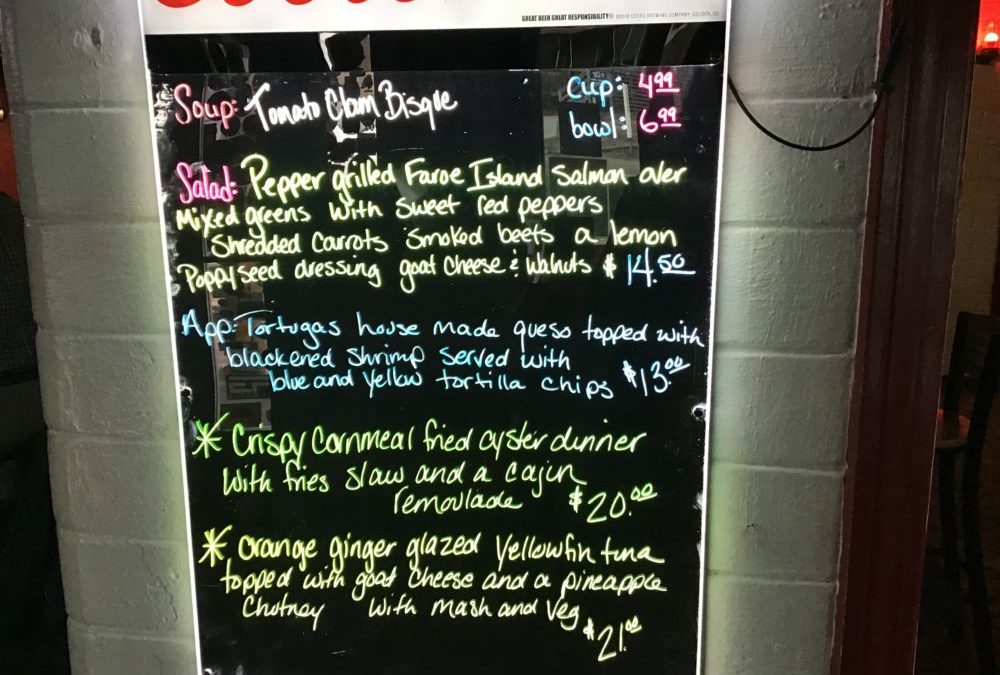 GREAT BEER GREAT RESPONSIBILITY® ©2016 COORS BREWING COMPANY, GOLDEN, CO.
Soup: Tomato Clam Bisque cup: 4.99
bowl: 6.99
Salad: Pepper grilled Faroe Island Salmon over
Mixed greens with sweet red peppers
Shredded carrots smoked beets a lemon
Poppyseed dressing goat cheese & walnuts $14.50
App: Tortugas house made queso topped with
blackened shrimp served with
blue and yellow tortilla chips $13.00
* Crispy Cornmeal fried oyster dinner
With fries slaw and a cajun
remoulade $20.00
* Orange ginger glazed Yellowfin tuna
topped with goat cheese and a pineapple
Chutney with mash and veg
$21.00